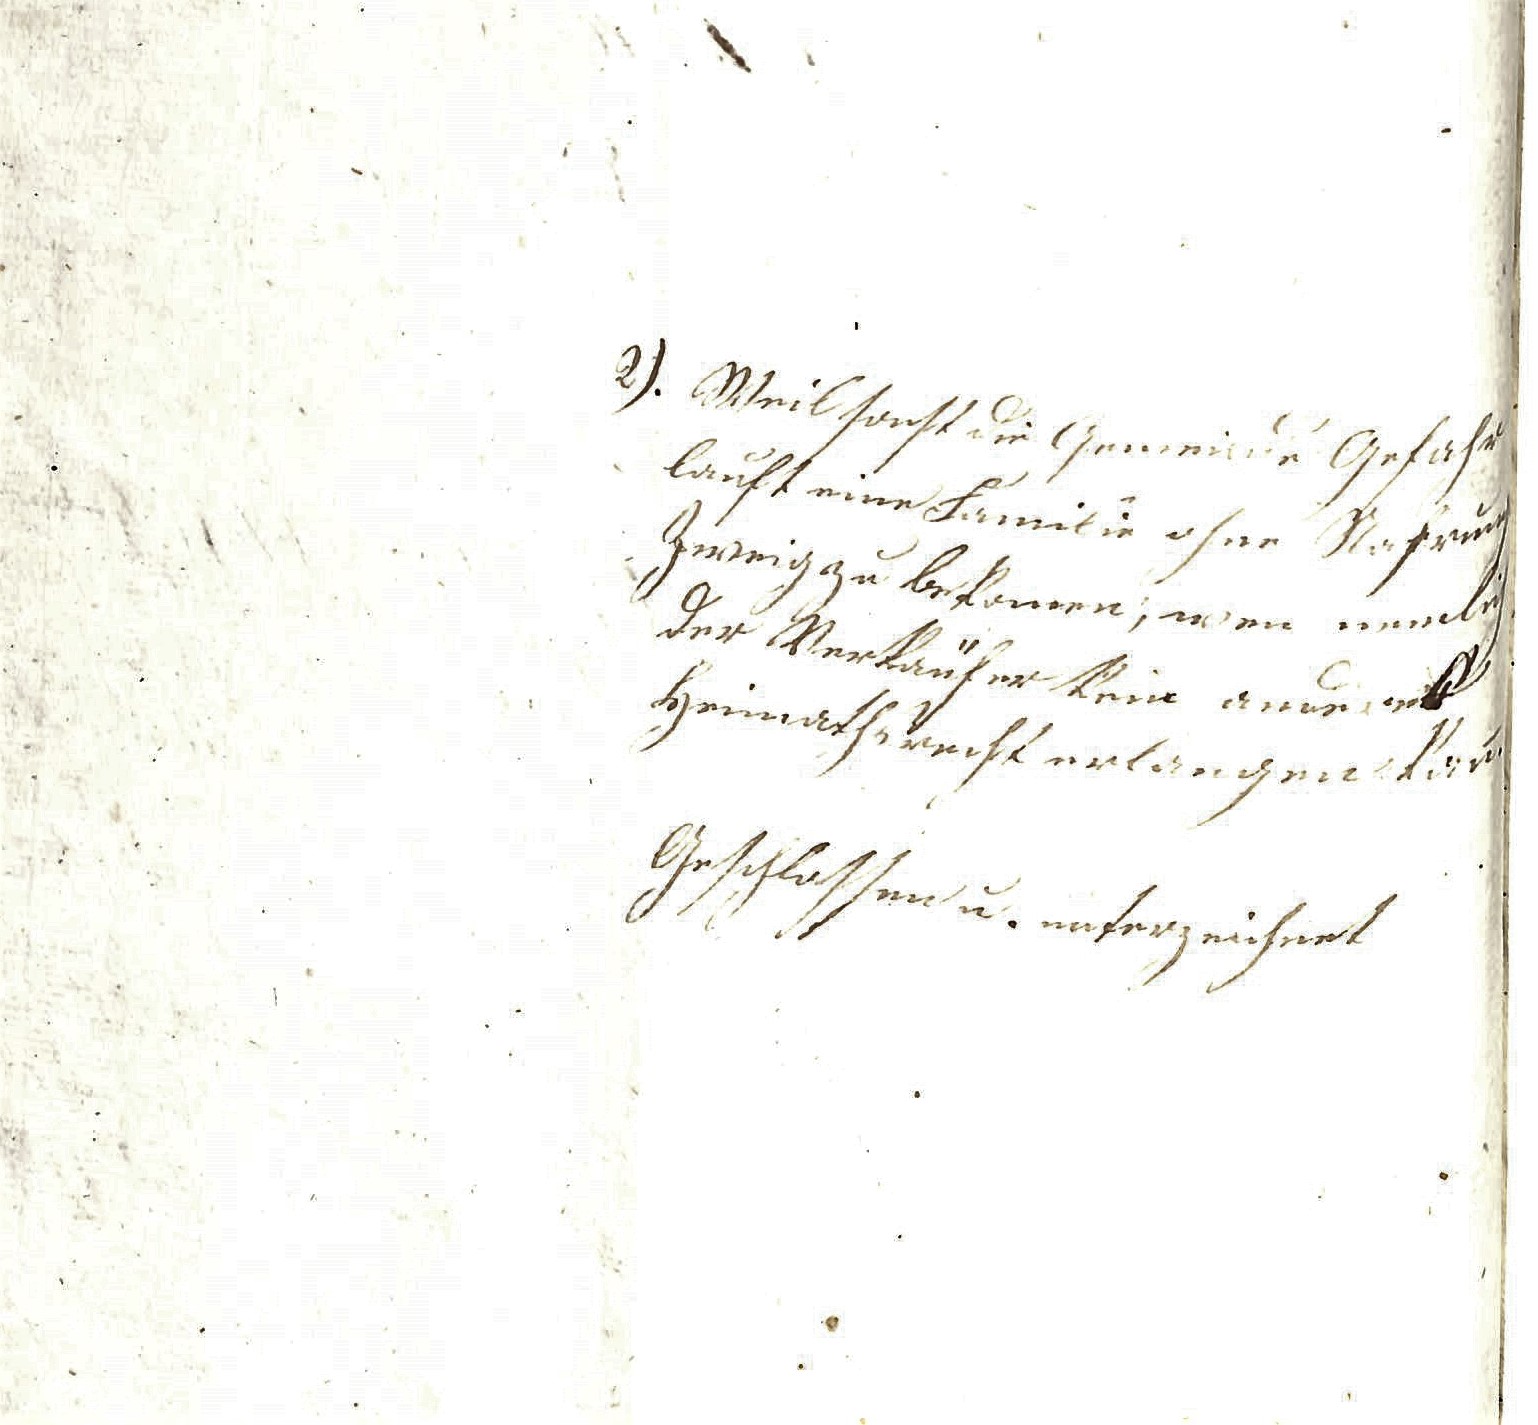 2). Weil sonst die Gemeinde Gefahr
lauft eine Familie ohne Nahrung
Zweig zu bekomen, wen nemlich
der Verkäufer kein anderes
Heimathsrecht erlangen kan.
Geschlossen u. unterzeichnet